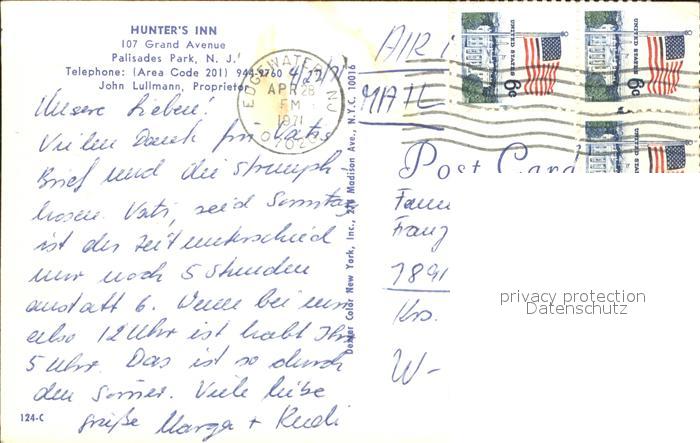 HUNTER'S INN
107 Grand Avenue
Palisades Park, N. J.
Telephone: (Area Code 201) 944-9760
John Lullmann, Proprietor
4/27/71
Unsere Lieben!
Vielen Dank für Vatis
Brief und die Strumpf-
hosen. Vati, seid Sonntag
ist der Zeitunterschied
nur noch 5 Stunden
anstatt 6. Wenn bei uns
also 12 Uhr ist habt Ihr
5 Uhr. Das ist so durch
den Somer. Viele liebe
grüße Marga + Rudi
124-C
Dexter Color New York, Inc., Madison Ave., N.Y.C. 10016
EDGEWATER NJ
APR 28
PM
1971
07020
AIR
MAIL
UNITED STATES 6c
UNITED STATES 6c
UNITED STATES 6c
Post Card
Fam
Franz
7891
Krs.
W-
privacy protection
Datenschutz